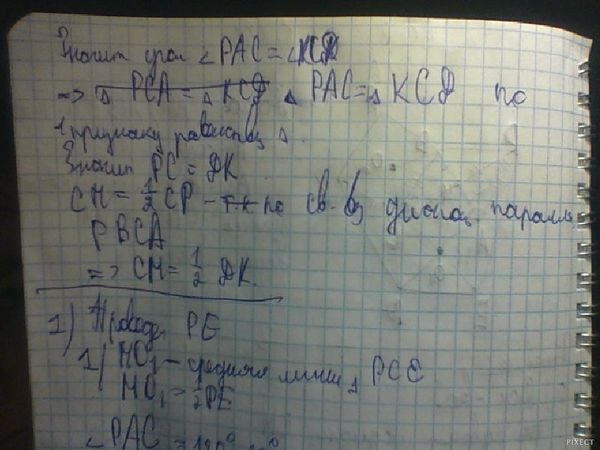 Значит угол ∠PAC = ∠KCD
=> △ PCA = △ KCD △ PAC = △ KCD по
1 признаку равенства △.
Значит PC = DK.
CH = 1/2 CP - т.к по св. диагон. паралл
PBCA
=> CH = 1/2 DK.
1) Проведём PE
1) HO₁ - средняя линия △ PCE
HO₁ = 1/2 PE
∠PAC =
PIXECT